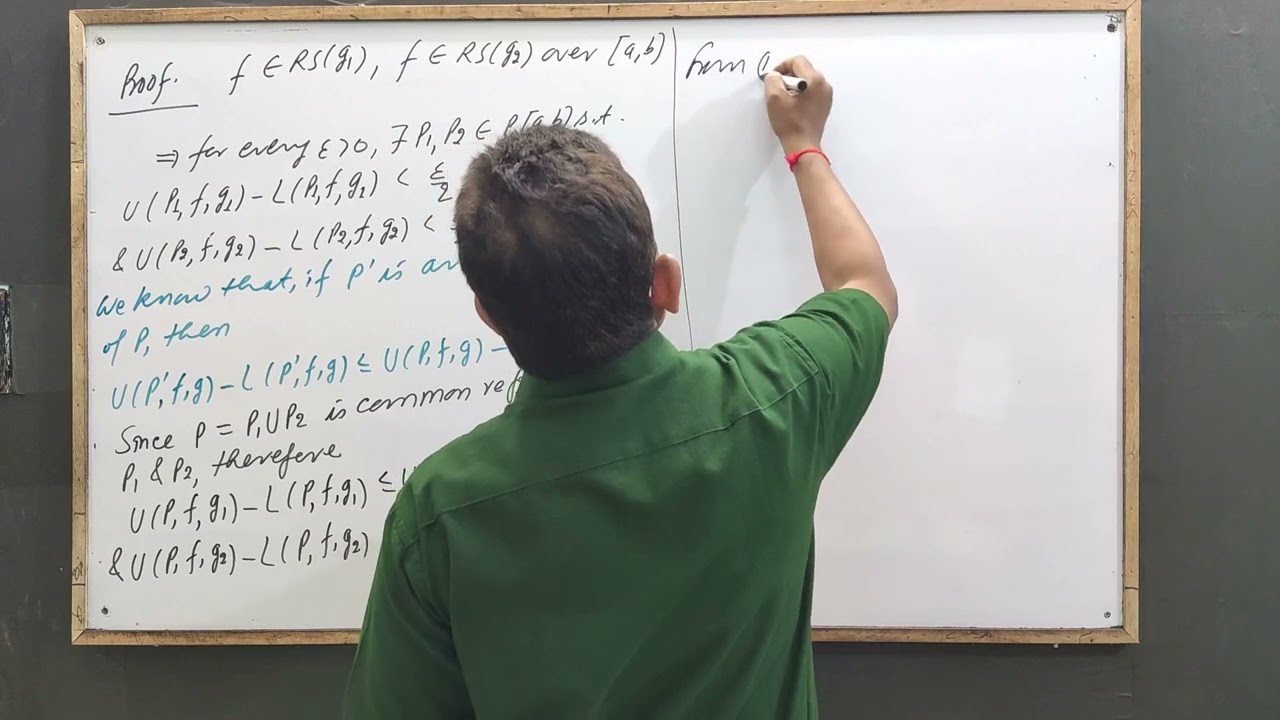 Proof. f ∈ RS(g₁), f ∈ RS(g₂) over [a,b]
⇒ for every ε>0, ∃ P₁, P₂ ∈ P[a,b] s.t.
U(P₁,f,g₁) - L(P₁,f,g₁) < ε/2
& U(P₂,f,g₂) - L(P₂,f,g₂) <
We know that, if P' is
of P, then
U(P',f,g) - L(P',f,g) ≤ U(P,f,g) -
Since P = P₁UP₂ is common
P₁ & P₂, therefore
U(P,f,g₁) - L(P,f,g₁) ≤
& U(P,f,g₂) - L(P,f,g₂)
from